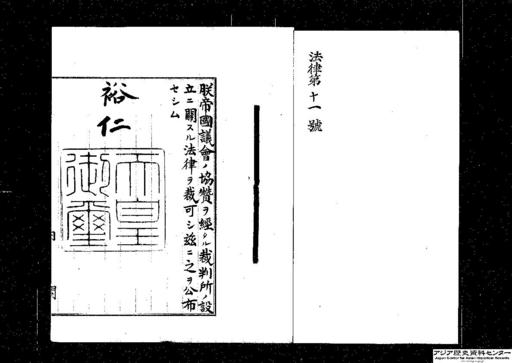 法律第十一號
朕帝國議會ノ協贊ヲ經タル裁判所ノ設
立ニ關スル法律ヲ裁可シ茲ニ之ヲ公布
セシム
裕仁
天皇
御璽
アジア歴史資料センター
Japan Center for Asian Historical Records